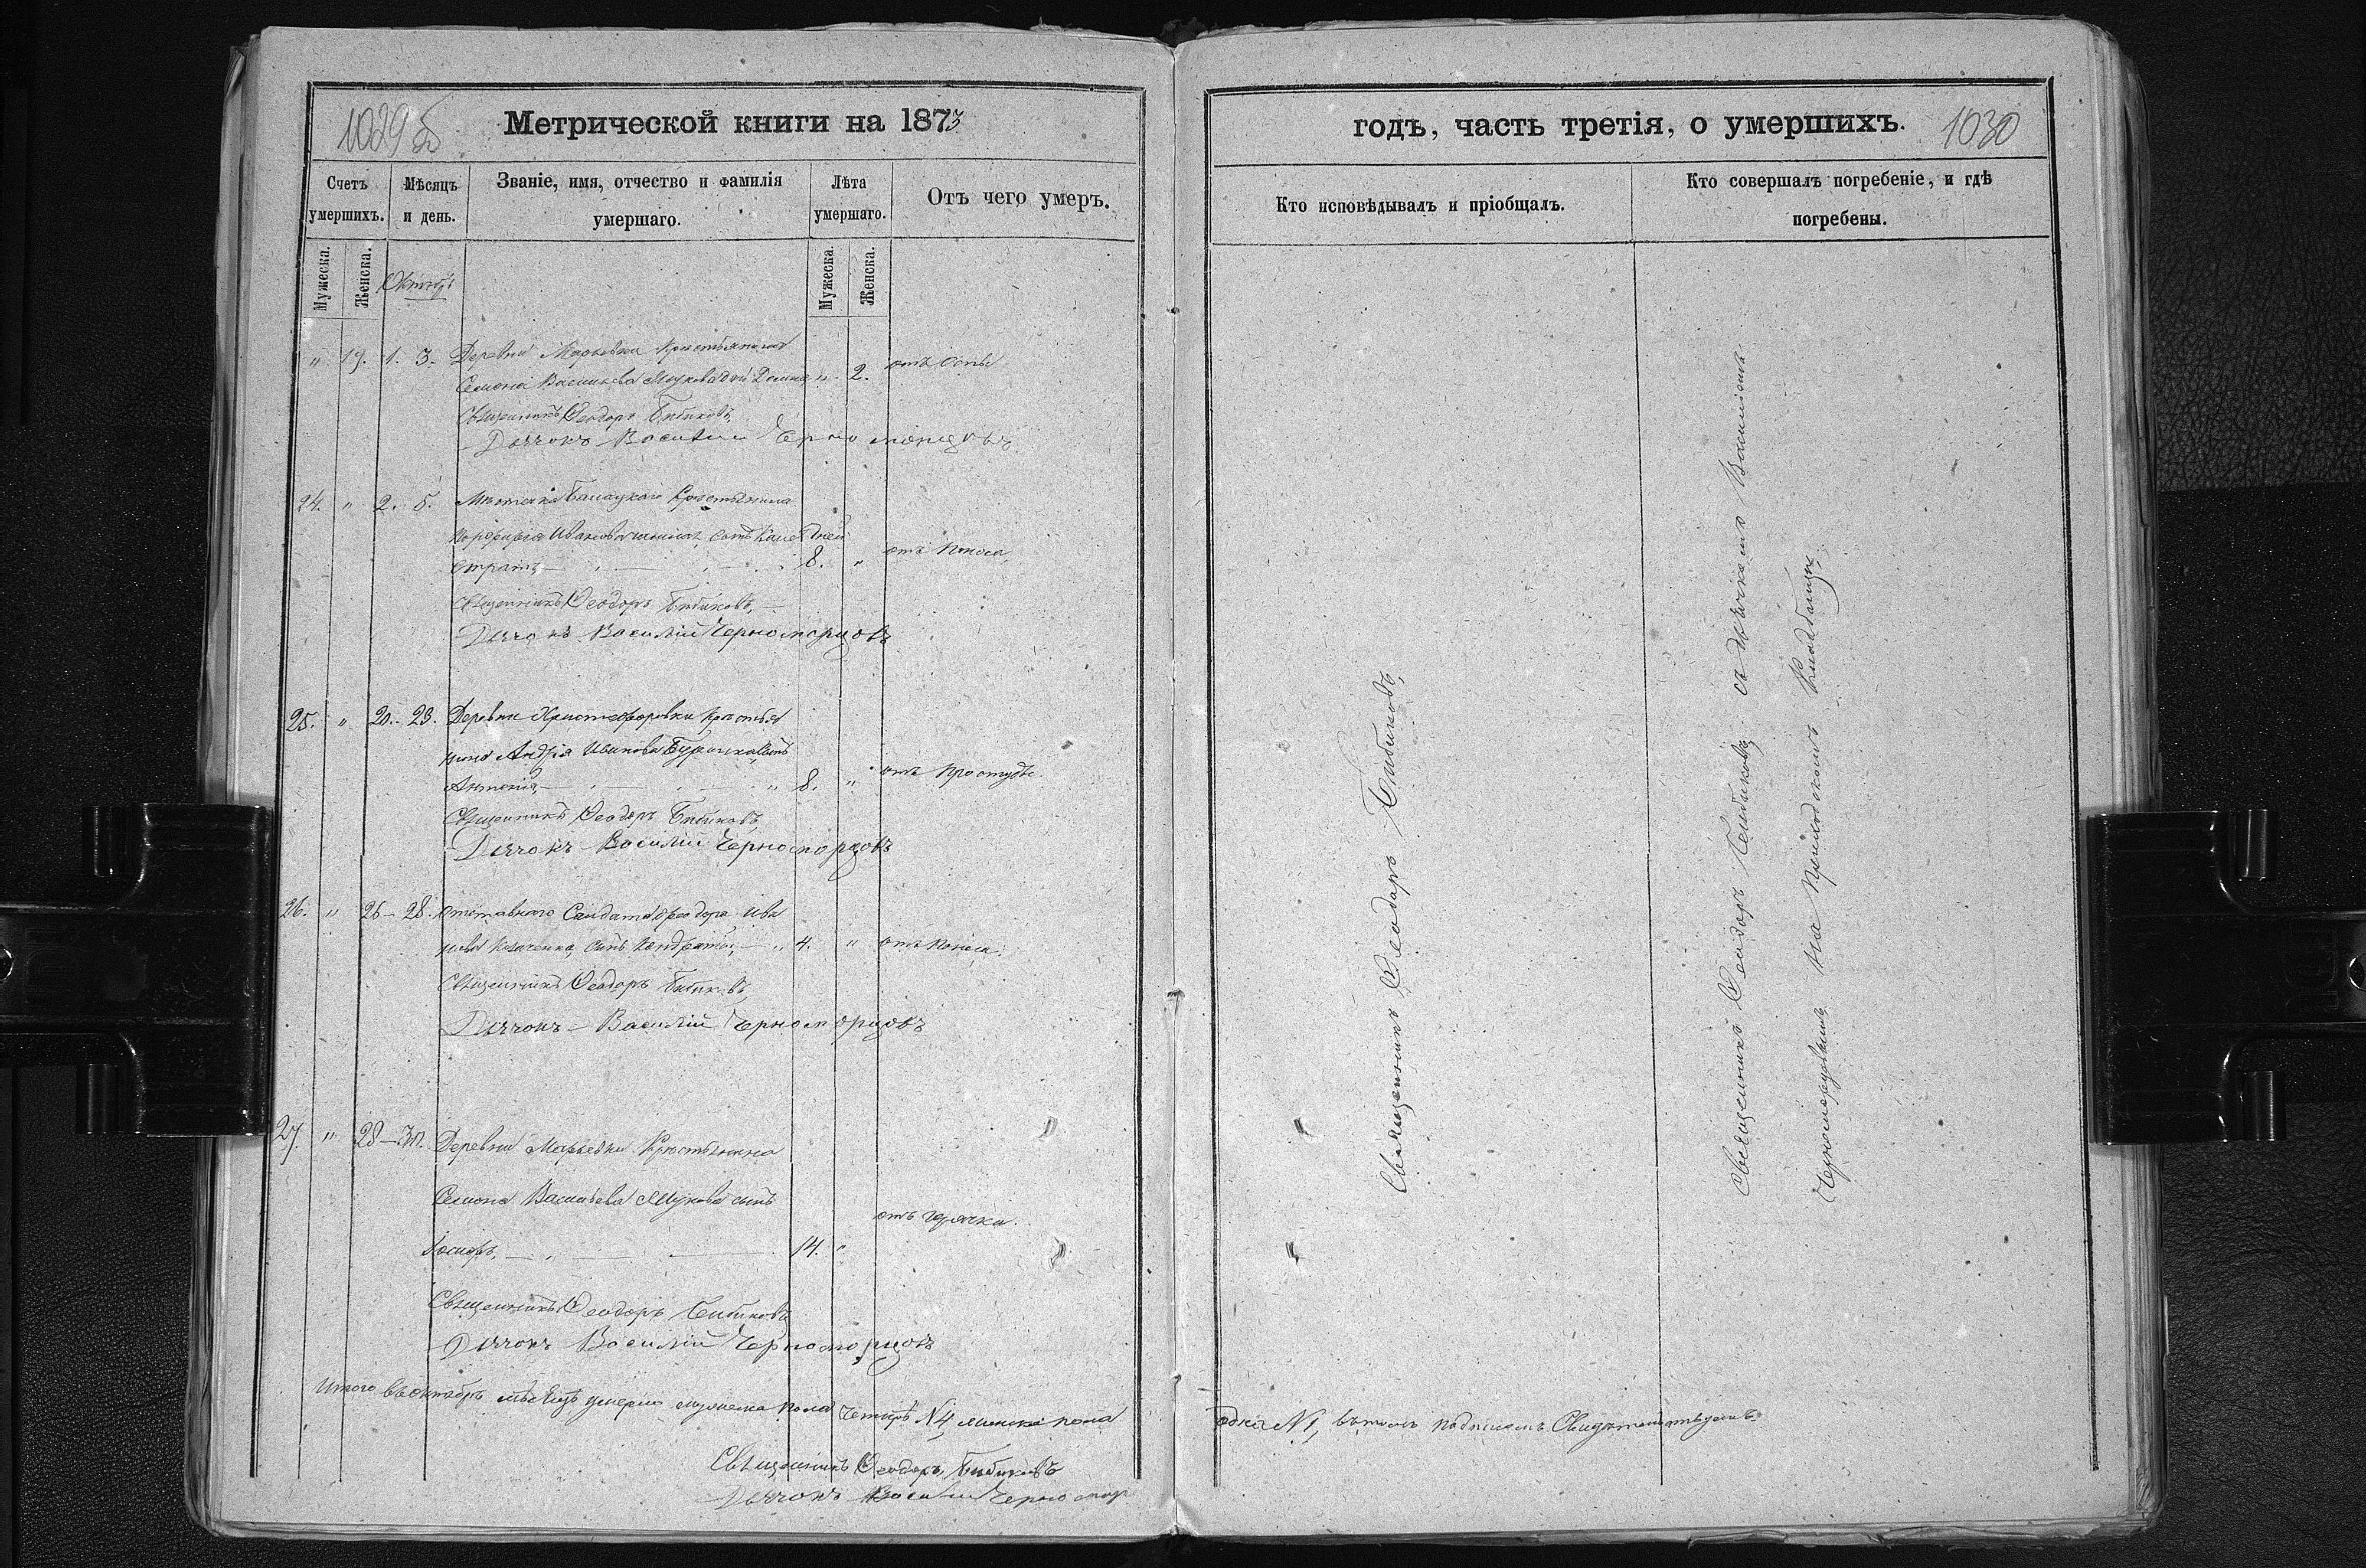 1029 б
Метрической книги на 1873
Счетъ умершихъ.
Мѣсяцъ и день.
Званіе, имя, отчество и фамилія умершаго.
Лѣта умершаго.
Отъ чего умеръ.
Мужеска.
Женска.
Октябрь
Мужеска
Женска.
" 19. 1. 3. Деревни Марьевки Крестьянина
Семена Васильева Мухова дочь " 2. отъ Оспы
Священникъ Ѳеодоръ Бибиковъ,
Дьячокъ Василій Черноморцовъ
24. " 2. 5. Мѣстечка Крестьянина
Порфирія Иванова сынъ дней
8. " отъ Поноса
Священникъ Ѳеодоръ Бибиковъ,
Дьячокъ Василій Черноморцовъ
25. " 20.-23. Деревни Христофоровки Крестья
нина Андрея Иванова сынъ
Антоній, " 8. " отъ Простуды.
Священникъ Ѳеодоръ Бибиковъ,
Дьячокъ Василій Черноморцовъ
26. " 26-28. Отставнаго Солдата Ѳеодора Ива
нова Козаченка, сынъ Кондратій, " 4. " отъ Поноса.
Священникъ Ѳеодоръ Бибиковъ,
Дьячокъ Василій Черноморцовъ
27. " 28-30. Деревни Марьевки Крестьянина
Семена Васильева Мухова сынъ
отъ горячки.
Іосифъ, 14. "
Священникъ Ѳеодоръ Бибиковъ,
Дьячокъ Василій Черноморцовъ
Итого въ октябрѣ мѣсяцѣ умерло мужеска пола четыре N 4, женска пола
Священникъ Ѳеодоръ Бибиковъ
Дьячокъ Василій Черномор
годъ, часть третія, о умершихъ.
1030
Кто исповѣдывалъ и пріобщалъ.
Кто совершалъ погребеніе, и гдѣ погребены.
Священникъ Ѳеодоръ Бибиковъ,
Священникъ Ѳеодоръ Бибиковъ съ дьячкомъ Василіемъ
Черноморцовымъ на приходскомъ кладбищѣ,
одна N 1, въ томъ подписомъ Свидѣтельствуемъ.